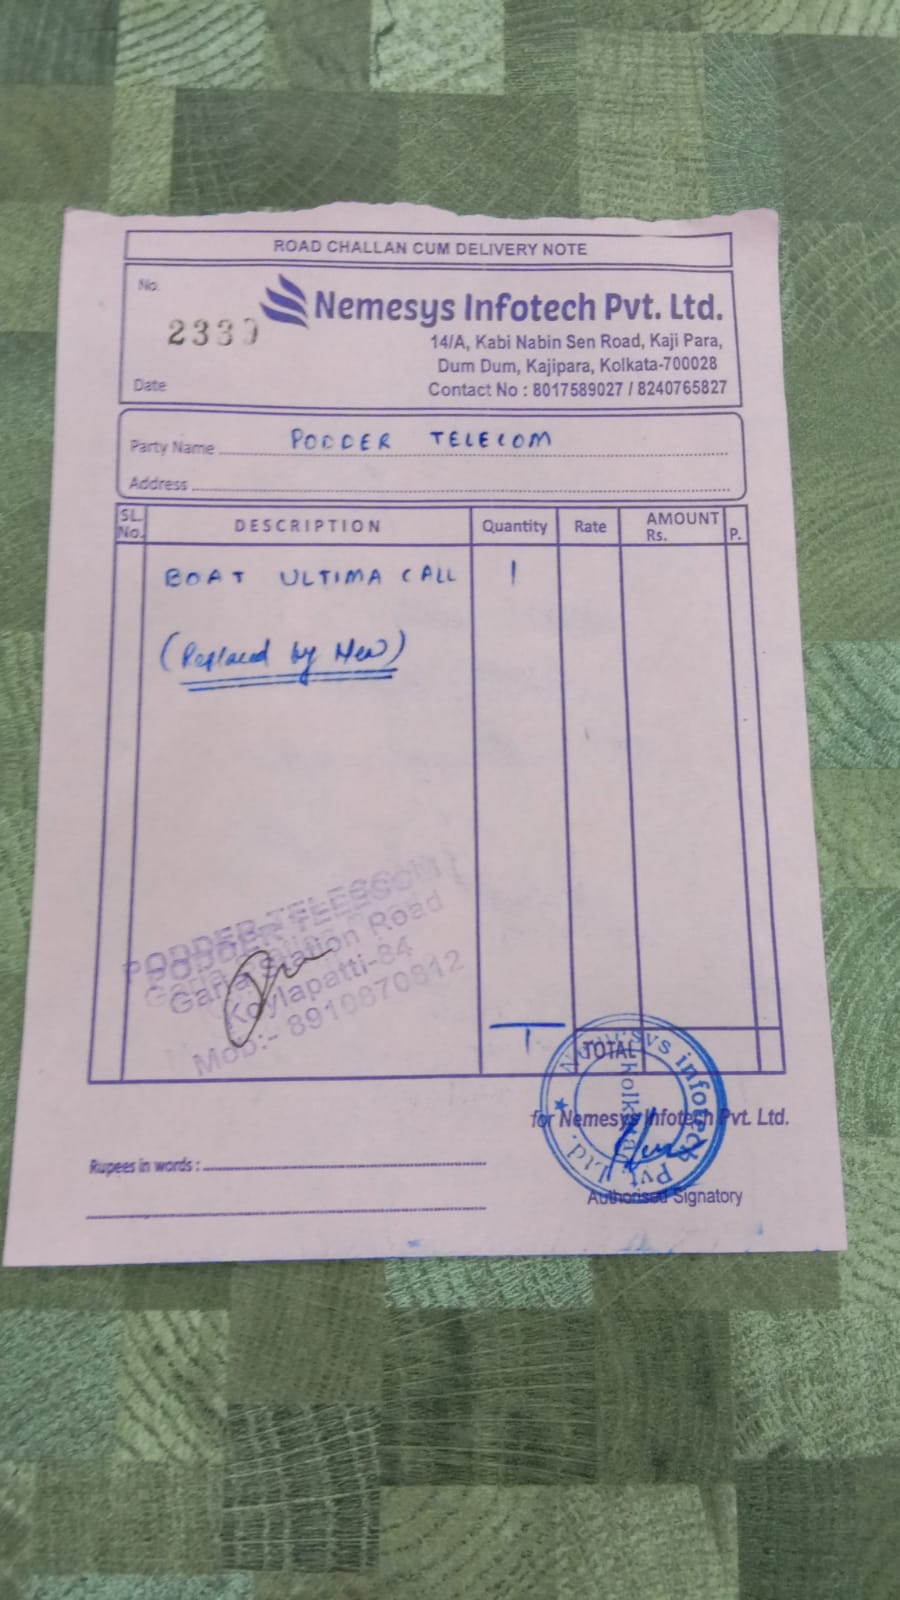 ROAD CHALLAN CUM DELIVERY NOTE
No.
Nemesys Infotech Pvt. Ltd.
2339
14/A, Kabi Nabin Sen Road, Kaji Para,
Dum Dum, Kajipara, Kolkata-700028
Date
Contact No : 8017589027 / 8240765827
Party Name PODDER TELECOM
Address
SL. No. DESCRIPTION Quantity Rate AMOUNT Rs. P.
BOAT ULTIMA CALL 1
(Replaced by New)
PODDER TELECOM
Garia Station Road
Koylapatti-84
Mob:- 8910870812
1 TOTAL
Nemesys Infotech Pvt. Ltd.
Kolkata
for Nemesys Infotech Pvt. Ltd.
Rupees in words :
Authorised Signatory